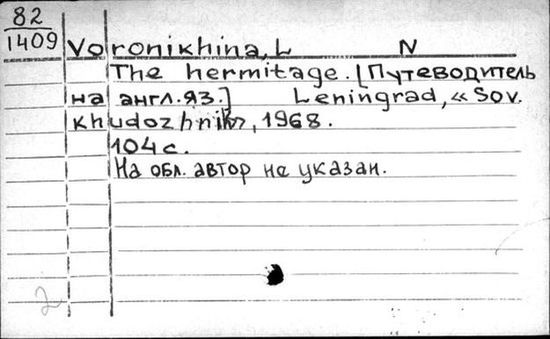 82
1409
Voronikhina, L N
The hermitage. [Путеводитель
на англ. яз.] Leningrad, «Sov.
khudozhnik», 1968.
104 с.
На обл. автор не указан.
2